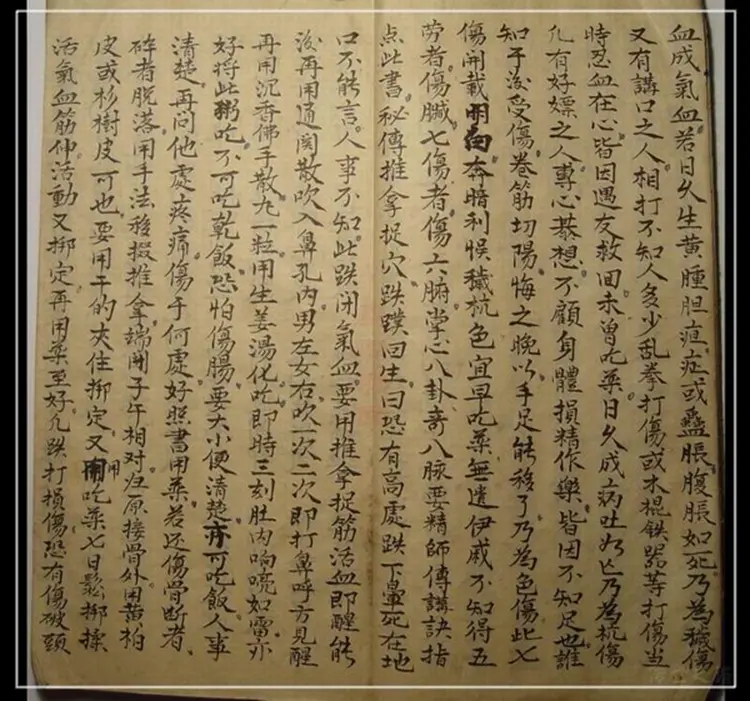 血成氣血若日久生黄腫胆疸症或蠱脹腹脹如死乃為穢傷
又有講口之人相打不知人多少乱拳打傷或木棍鉄器等打傷当
時忍血在心皆因遇友救回未曾吃薬日久成病吐 亡乃為杭傷
凢有好嫖之人專心慕想不顧身體損精作樂皆因不知足也誰
知于後受傷卷筋切陽悔之晚以手足能移了乃為色傷此七
傷開載明白奔暗利悮穢杭色宜早吃薬無遺伊戚不知得五
劳者傷臟七傷者傷六腑掌心八卦奇八脉要精師傳講訣指
点此書秘傳推拿捉穴跌蹼回生曰恐有高處跌下鼻死在地
口不能言人事不知此跌闭氣血要用推拿捉筋活血即醒能
後再用通関散吹入鼻孔内男左女右吹一次二次即打鼻呼方見醒
再用沉香佛手散九一粒用生姜湯化吃即時三刻肚内响喨如雷亦
好将此粥吃不可吃乾飯恐怕傷腸要大小便清楚亦可吃飯人事
清楚再問他處疼痛傷于何處好照書用薬若还傷骨断者
碎者脱落用手法移掇推拿端開子午相对归原接骨外用黄柏
皮或杉樹皮可也要用干的夾住綁定又用吃薬七日鬆綁揉
活氣血筋伸活動又綁定再用薬至好凢跌打損傷恐有傷破頭